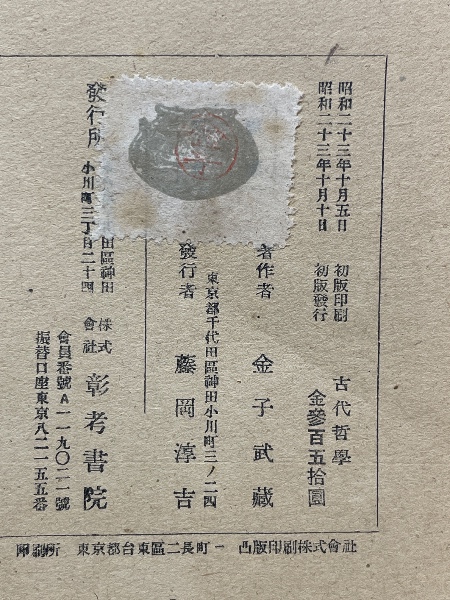 昭和二十三年十月五日 初版印刷
昭和二十三年十月十日 初版發行
古代哲學
金參百五拾圓
著作者 金子武藏
東京都千代田區神田小川町三ノ二四
發行者 藤岡淳吉
發行所
田區神田
小川町三丁目二十四
株式會社 彰考書院
會員番號A一一九〇二一號
振替口座東京八二一五五番
印刷所 東京都台東區二長町一 凸版印刷株式會社